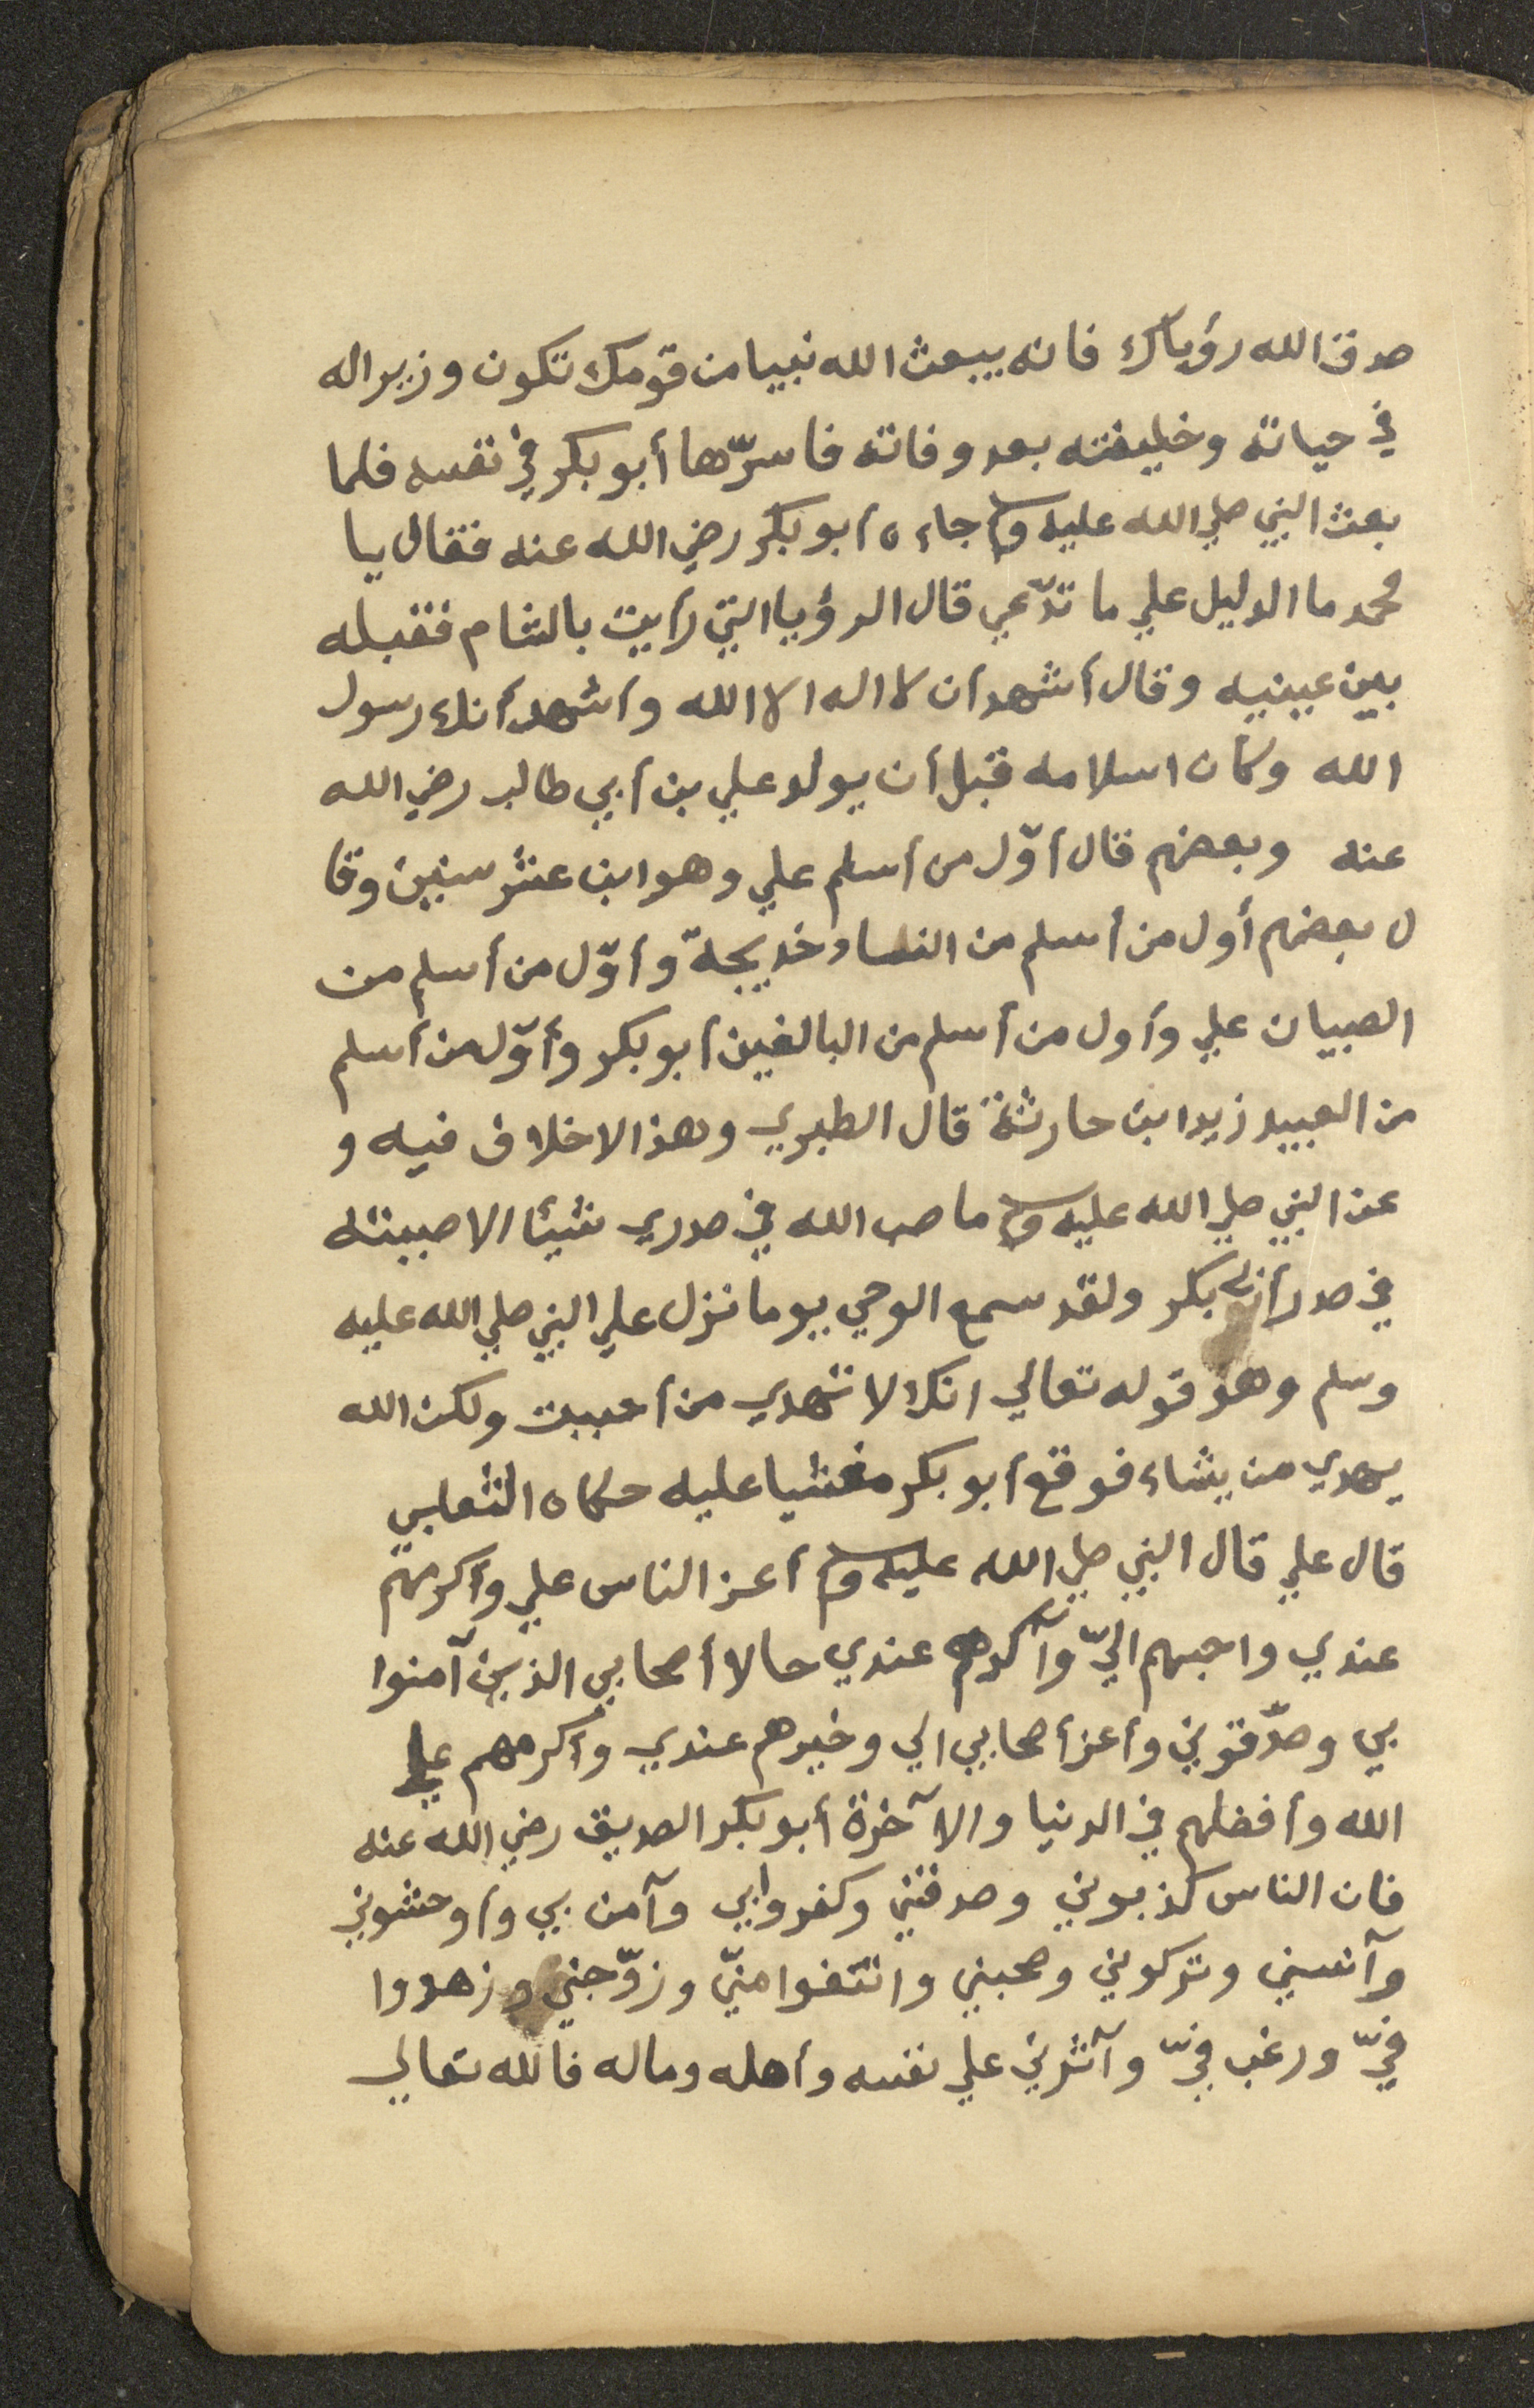 صدق الله رؤياك فانه يبعث الله نبيا من قومك تكون وزيرا له
في حياته وخليفته بعد وفاته فاسرّها أبو بكر في نفسه فلما
بعث النبي صلي الله عليه وسلم جاءه أبو بكر رضي الله عنه فقال يا
محمد ما الدليل علي ما تدّعي قال الرؤيا التي رأيت بالشام فقبله
بين عينيه وقال أشهد أن لا اله الا الله وأشهد أنك رسول
الله وكان اسلامه قبل أن يولد علي بن أبي طالب رضي الله
عنه وبعضهم قال أوّل من أسلم علي وهو ابن عشر سنين وقا
ل بعضهم أول من أسلم من النساء خديجة وأوّل من أسلم من
الصبيان علي وأول من أسلم من البالغين أبو بكر وأوّل من أسلم
من العبيد زيد ابن حارثة قال الطبري وهذا لا خلاف فيه و
عن النبي صلي الله عليه وسلم ما صب الله في صدري شيئا الا صببته
في صدر أبي بكر ولقد سمع الوحي يوما نزل علي النبي صلي الله عليه
وسلم وهو قوله تعالي انك لا تهدي من أحببت ولكن الله
يهدي من يشاء فوقع أبو بكر مغشيا عليه حكاه الثعلبي
قال علي قال النبي صلي الله عليه وسلم أعز الناس علي وأكرمهم
عندي واحبهم اليّ وآكدهم عندي حالا أصحابي الذين آمنوا
بي وصدّقوني وأعز أصحابي الي وخيرهم عندي وأكرمهم علي
الله وأفضلهم في الدنيا والآخرة أبو بكر الصديق رضي الله عنه
فان الناس كذبوني وصدقني وكفروا بي وآمن بي وأوحشوني
وآنسني وتركوني وصحبني وانتفوا منيّ وزوّجني وزهدوا
فيّ ورغب فيّ وآثرني علي نفسه وأهله وماله فالله تعالي